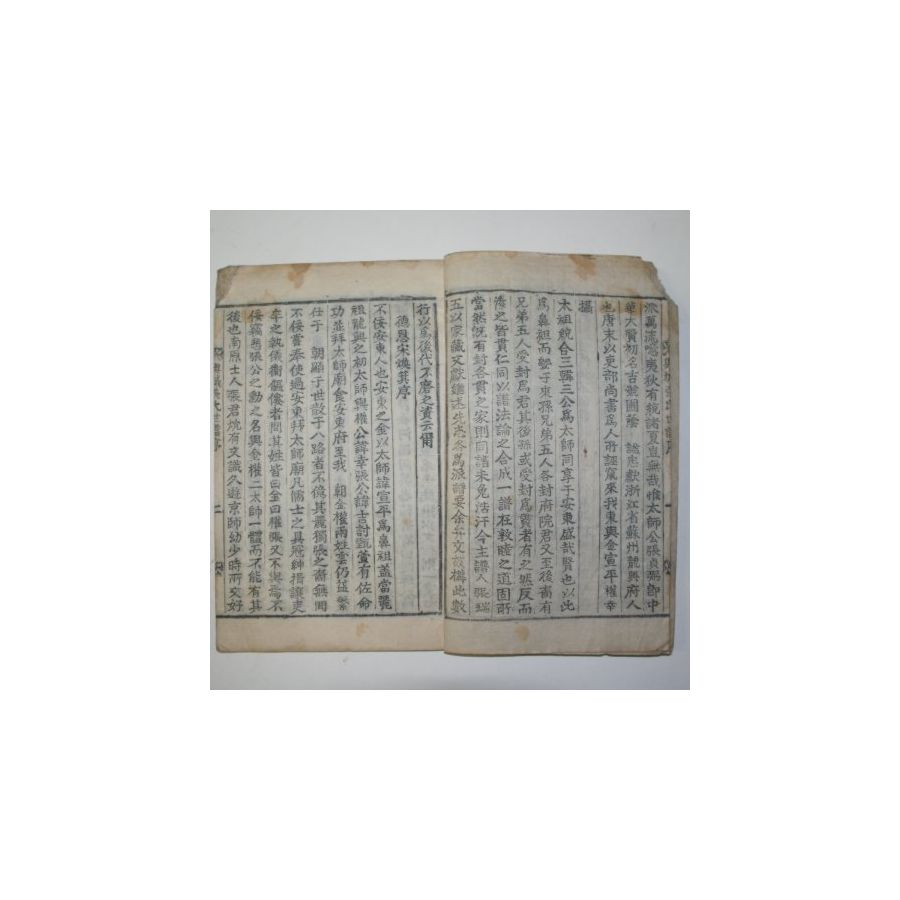 派萬流 夷狄有貌諸夏豈無哉惟太師公張貞弼卽中
華大賢初名吉號圃蔭 諡忠獻浙江省蘇州龍興府人
也唐末以吏部尙書爲人所誣 來我東與金宣平權幸
太祖統合三韓三公爲太師同享于安東盛哉賢也以此
爲鼻祖而 子東孫兄弟五人各封府院君又至後裔有
兄弟五人受封爲君其後孫或受封爲貫者有之然反而
湊之皆貫仁同以譜法論之合成一譜在敦睦之道固所
當然旣有封各貫之家則同譜未免浩汗今主譜人張瑞
五以家藏文獻 爲派譜要余弁文 此數
行以爲後代不磨之資云爾
德恩宋煥箕序
不佞安東人也安東之金以太師諱宣平爲鼻祖盖當麗
祖龍興之初太師與權公諱幸張公諱吉討甄萱有佐命
功並拜太師廟食安東府至我 朝金權兩姓雲仍益繁
仕于 朝顯于世散于八路者不億其麗獨張之裔無聞
不佞嘗奉使過安東拜太師廟凡儒士之具冠紳揖讓吏
卒之執儀衛傴僂者問其姓皆曰金曰權張又不與焉不
佞竊 張公之勳之名與金權二太師一體而不能有其
後也南原士人張君烷有文識久遊京師幼少時所交好